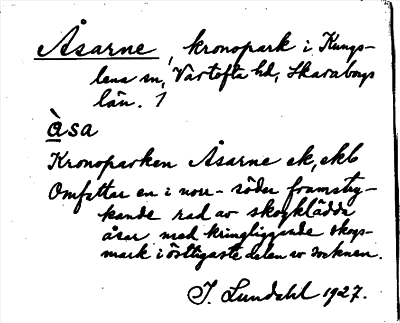 Åsarne, kronopark i Kungs-
lena sn, Vartofta hd, Skaraborgs
län. 1
àsa
Kronoparken Åsarne ek, ekb
Omfattar en i norr-söder framstry-
kande rad av skogklädda
åsar med kringliggande skogs-
mark i östligaste delen av socknen.
I. Lundahl 1927.